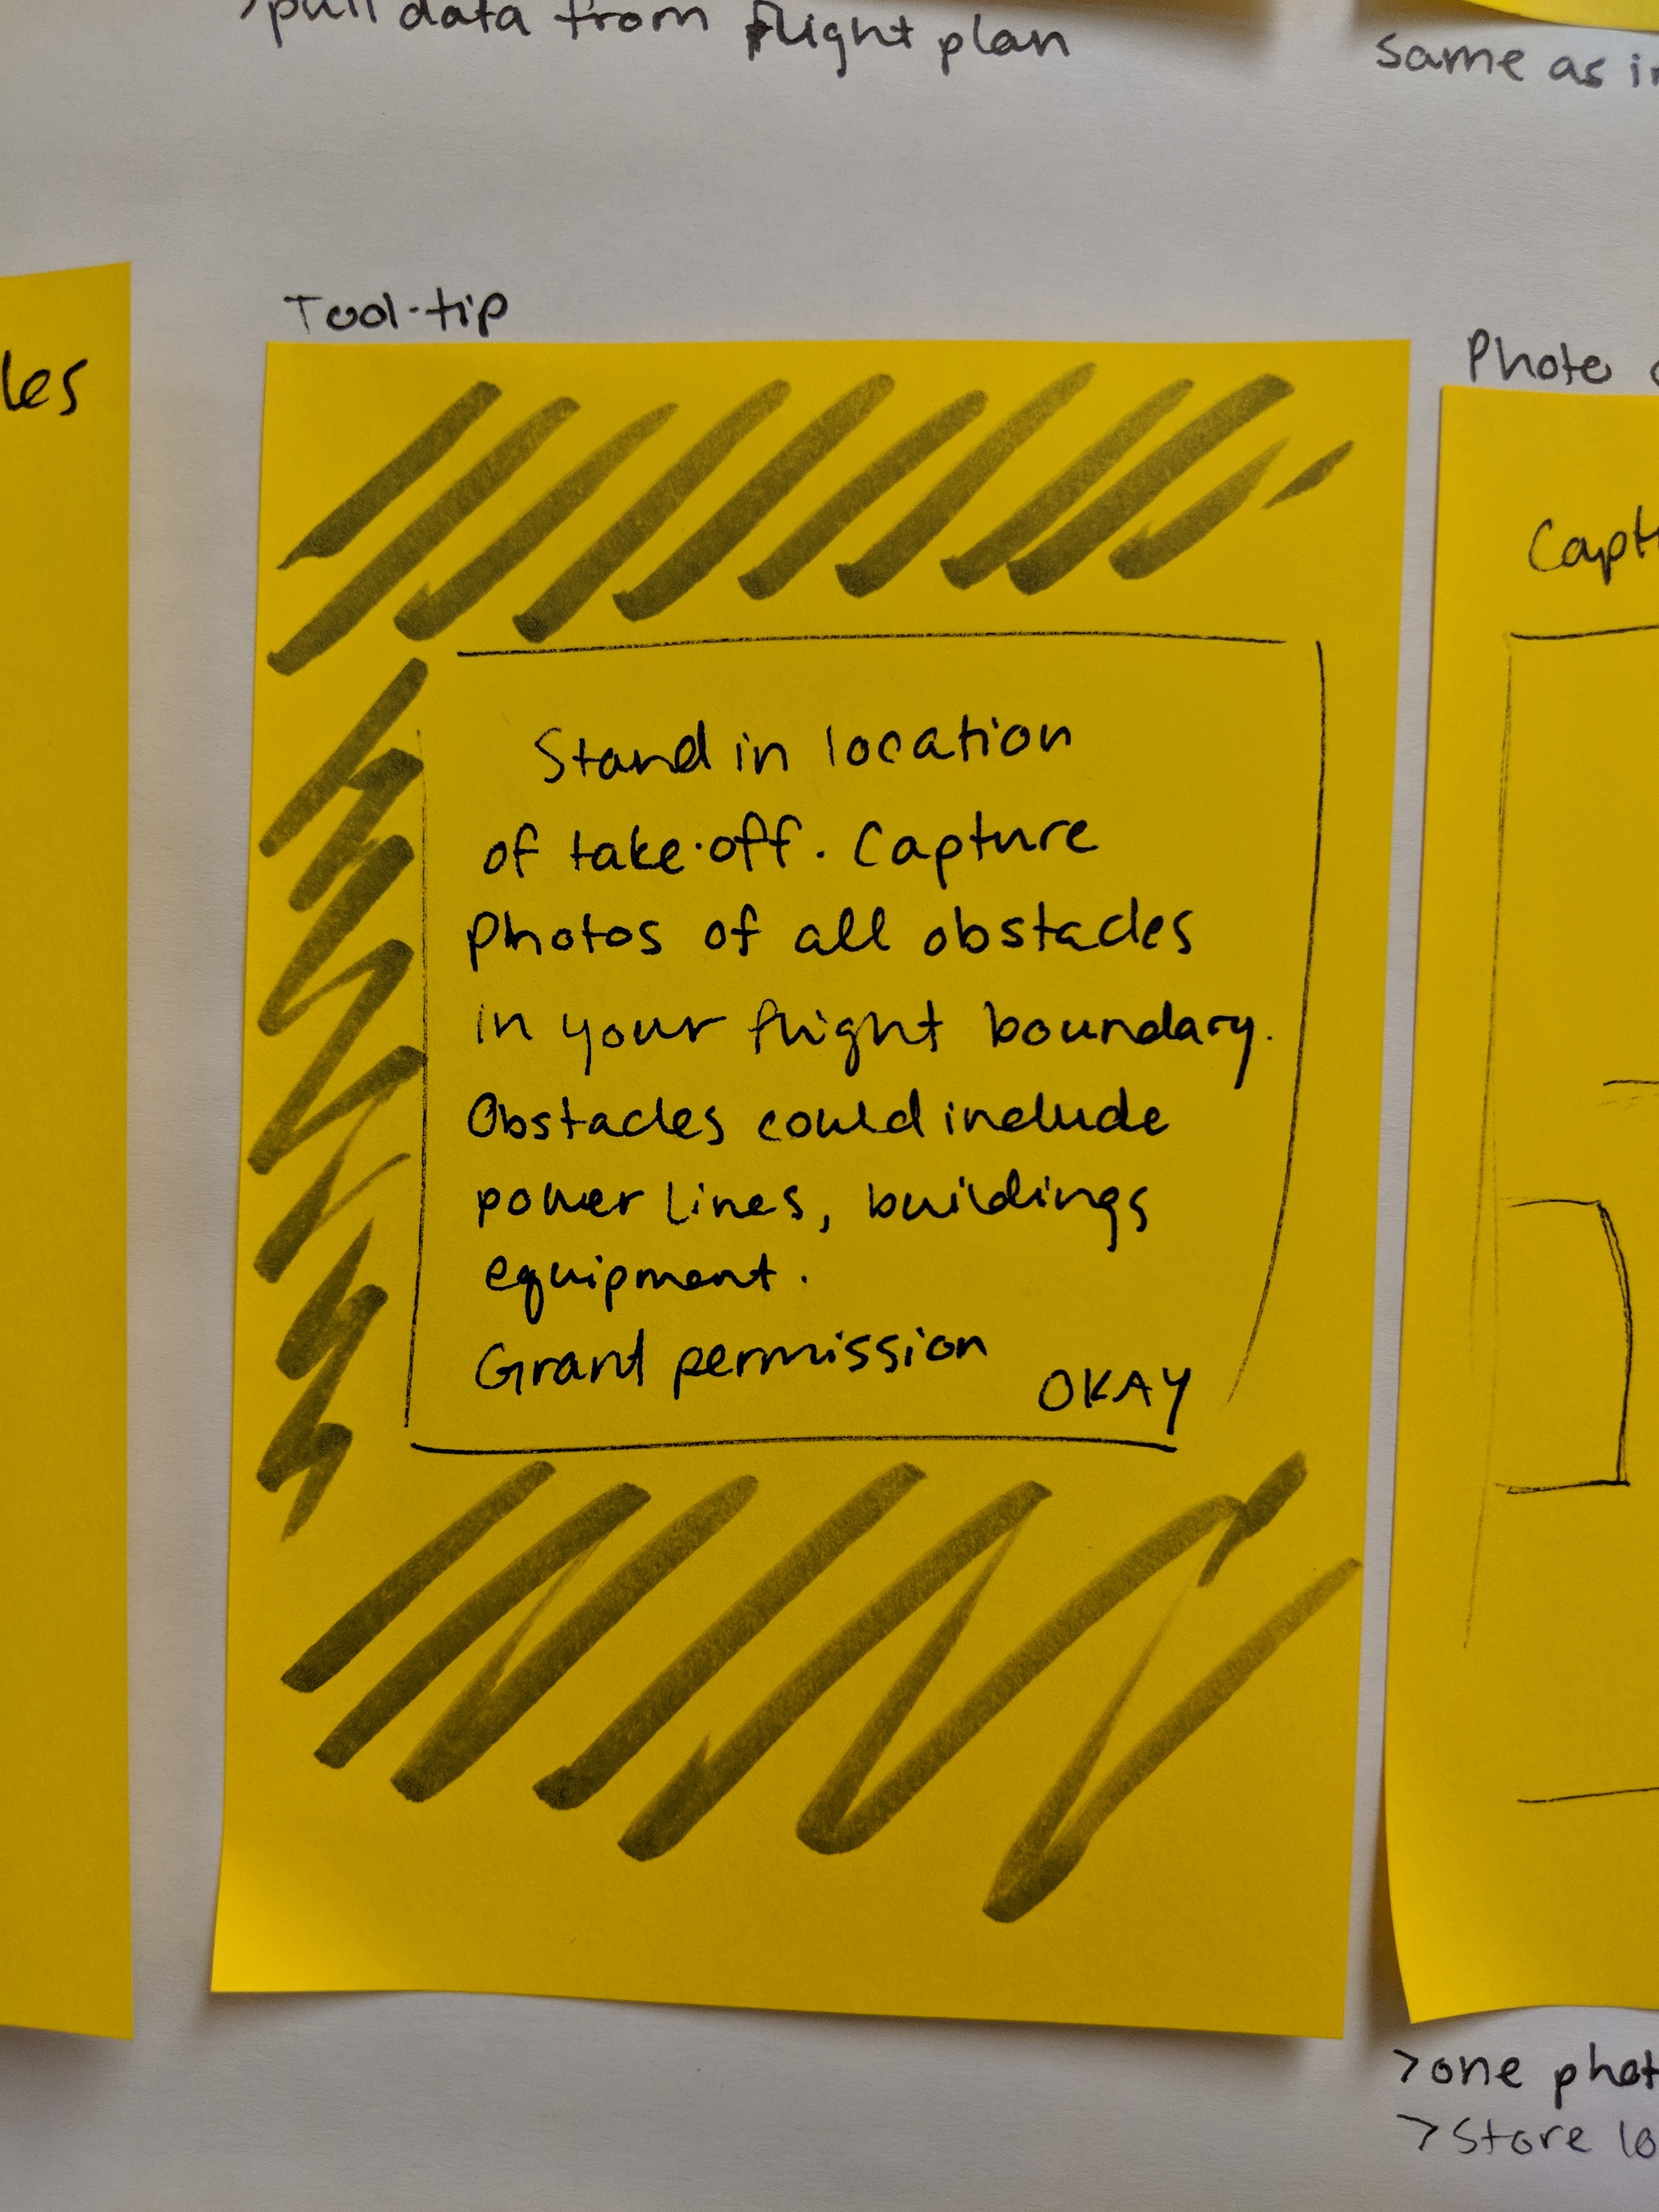 >pull data from flight plan
same as
Tool-tip
Photo
Stand in location
of take-off. Capture
Photos of all obstacles
in your flight boundary.
Obstacles could include
power lines, buildings
equipment.
Grant permission
OKAY
>one
>Store